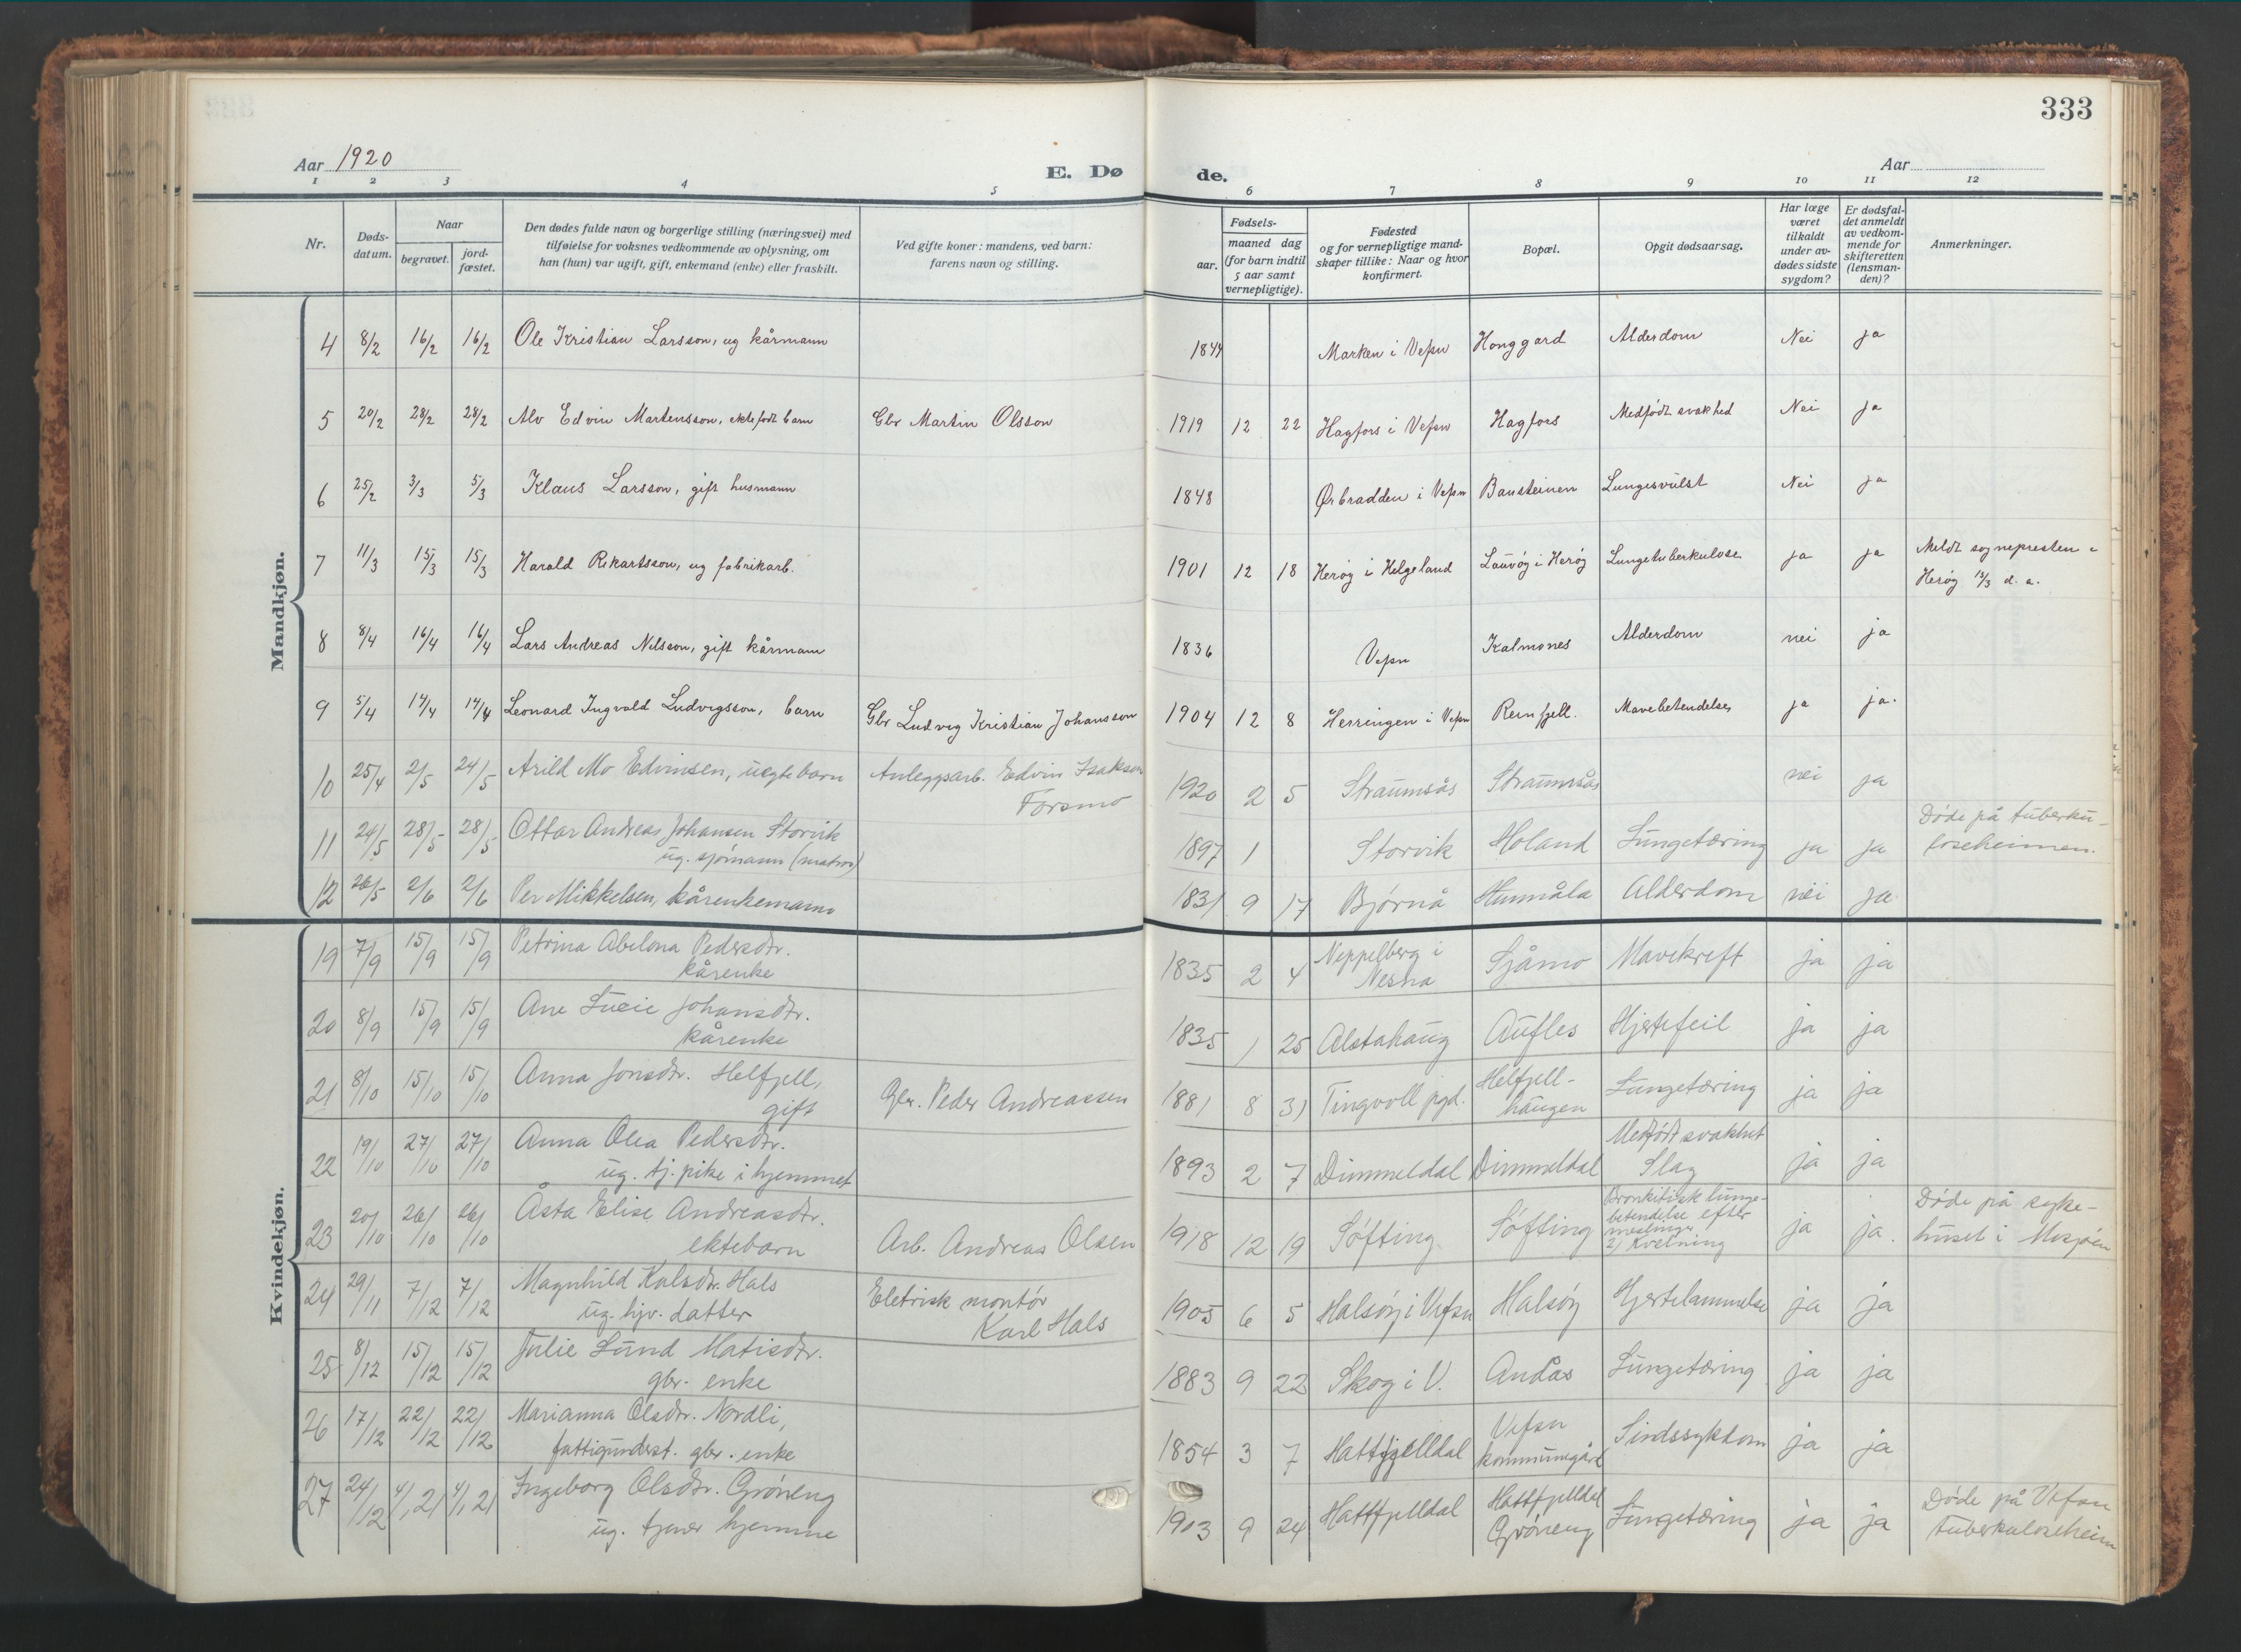 333
Aar 1920
E. Dø
de.
Aar
1 2 3 4 5 6 7 8 9 10 11 12
Nr.
Døds-
datum.
Naar
begravet.
jord-
fæstet.
Den dødes fulde navn og borgerlige stilling (næringsvei) med
tilføielse for voksnes vedkommende av oplysning, om
han (hun) var ugift, gift, enkemand (enke) eller fraskilt.
Ved gifte koner: mandens, ved barn:
farens navn og stilling.
Fødsels-
aar.
maaned dag
(for barn indtil
5 aar samt
vernepligtige).
Fødested
og for vernepligtige mand-
skaper tillike: Naar og hvor
konfirmert.
Bopæl.
Opgit dødsaarsag.
Har læge
været
tilkaldt
under av-
dødes sidste
sygdom?
Er dødsfal-
det anmeldt
av vedkom-
mende for
skifteretten
(lensman-
den)?
Anmerkninger.
Mandkjøn.
4 8/2 16/2 16/2 Ole Kristian Larsson, ug kårmann 1844 Marken i Vefsn Honggard Alderdom Nei ja
5 20/2 28/2 28/2 Alv Edvin Martensson, ektefødt barn Gbr Martin Olsson 1919 12 22 Hagfors i Vefsn Hagfors Medfødt svakhed Nei ja
6 25/2 3/3 5/3 Klaus Larsson, gift husmann 1848 Ørbradden i Vefsn Bausteinen Lungesvulst Nei ja
7 11/3 15/3 15/3 Harald Rikartsson, ug fabrikarb. 1901 12 18 Herøy i Helgeland Lauvøy i Herøy Lungetuberkulose ja ja Meldt sognepresten i
Herøy 13/3 d. a.
8 8/4 16/4 16/4 Lars Andreas Nilsson, gift kårmann 1836 Vefsn Kalmones Alderdom nei ja
9 5/4 14/4 14/4 Leonard Ingvald Ludvigsson, barn Gbr Ludvig Kristian Johansson 1904 12 8 Herringen i Vefsn Reinfjell. Mavebetendelse ja ja.
10 25/4 2/5 24/5 Arild Mo Edvinsen, uegte barn Anleggsarb. Edvin Isaksen
Forsmo
1920 2 5 Straumsås Straumsås nei ja
11 24/5 28/5 28/5 Ottar Andreas Johansen Storvik
ug. sjømann (matros)
1897 1 Storvik Holand Lungetæring ja ja Døde på tuberku-
loseheimen.
12 26/5 2/6 2/6 Per Mikkelsen, kårenkemann 1831 9 17 Bjørnå Hunnåla Alderdom nei ja
Kvindekjøn.
19 7/9 15/9 15/9 Petrina Abelona Pedersdtr.
kårenke
1835 2 4 Neppelberg i
Nesna
Sjåmo Mavekreft ja ja
20 8/9 15/9 15/9 Ane Lucie Johansdtr.
kårenke
1835 1 25 Alstahaug Aufles Hjertefeil ja ja
21 8/10 15/10 15/10 Anna Jonsdtr. Helfjell,
gift
Gbr. Peder Andreassen 1881 8 31 Tingvoll pgd. Helfjell-
haugen
Lungetæring ja ja
22 19/10 27/10 27/10 Anna Olea Pedersdtr.
ug. tj. pike i hjemmet
1893 2 7 Dimmeldal Dimmeldal Medfødt svakhet
Slag
ja ja
23 20/10 26/10 26/10 Åsta Elise Andreasdtr.
ektebarn
Arb. Andreas Olsen 1918 12 19 Søfting Søfting Bronkitisk lunge-
betendelse efter
meslinger
2) Kvelning
ja ja. Døde på syke-
huset i Mosjøen
24 29/11 7/12 7/12 Magnhild Kalsdtr. Hals
ug. hjv. datter
Eletrisk montør
Karl Hals
1905 6 5 Halsøy i Vefsn Halsøy Hjertelammelse ja ja
25 8/12 15/12 15/12 Julie Lund Matisdtr.
gbr. enke
1883 9 22 Skog i V. Andås Lungetæring ja ja
26 17/12 22/12 22/12 Marianna Olsdtr. Nordli,
fattigunderst. gbr. enke
1854 3 7 Hattfjelldal Vefsn
kommunegård
Sindssykdom ja ja
27 24/12 4/1 21 4/1 21 Ingeborg Olsdtr. Grøneng
ug. tjener hjemme
1903 9 24 Hattfjelldal Hattfjelldal
Grøneng
Lungetæring ja ja Døde på Vefsn
tuberkuloseheim